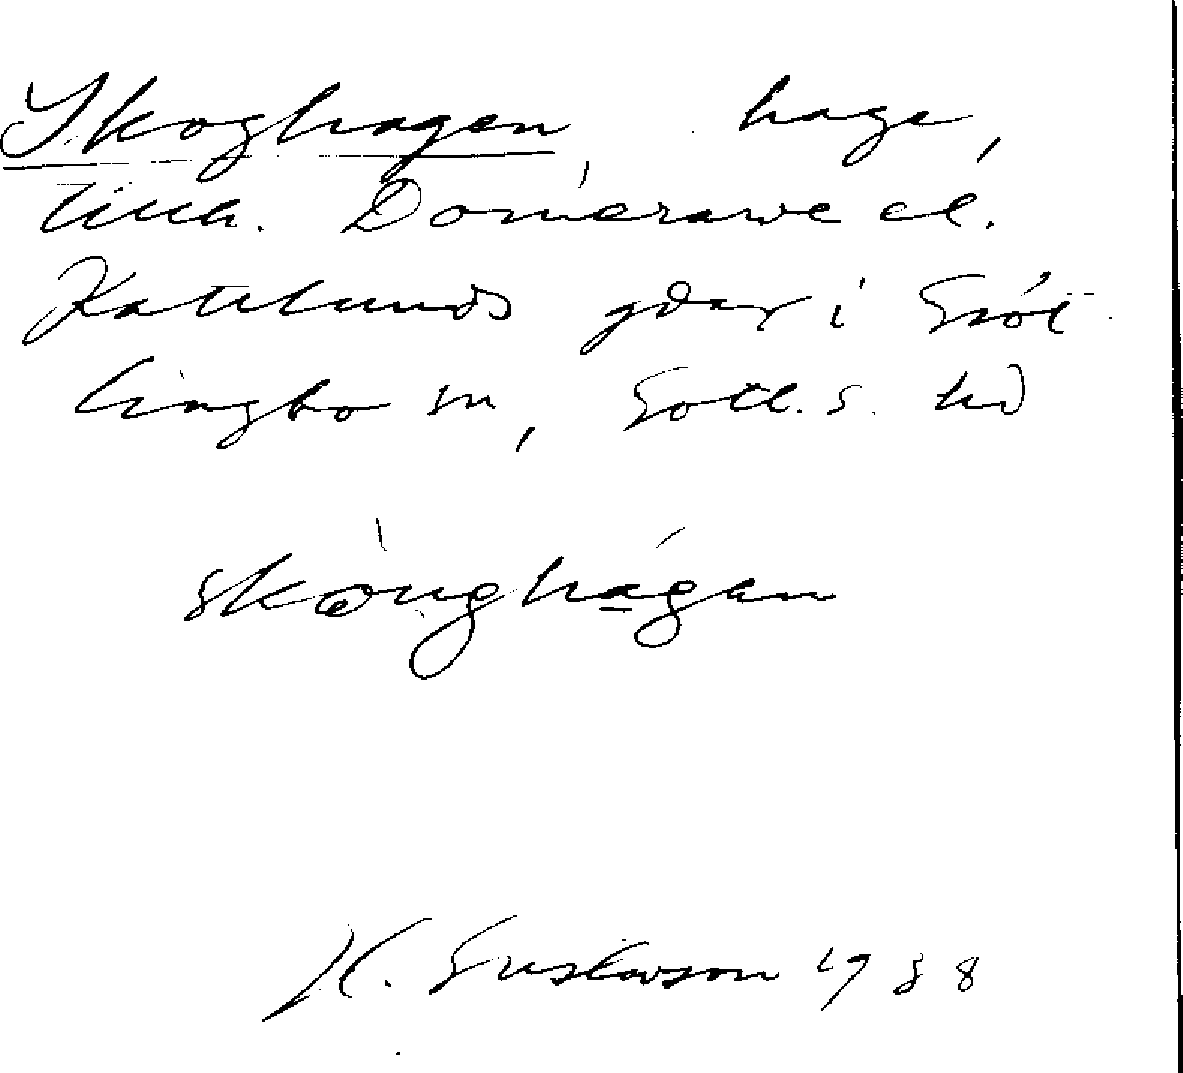 Skoghagen hage,
tillh. Domerarve el.
Kattlunds gdar i Gröt-
lingbo sn, Gotl. s. hd
skoughagen
H. Gustavson 1938